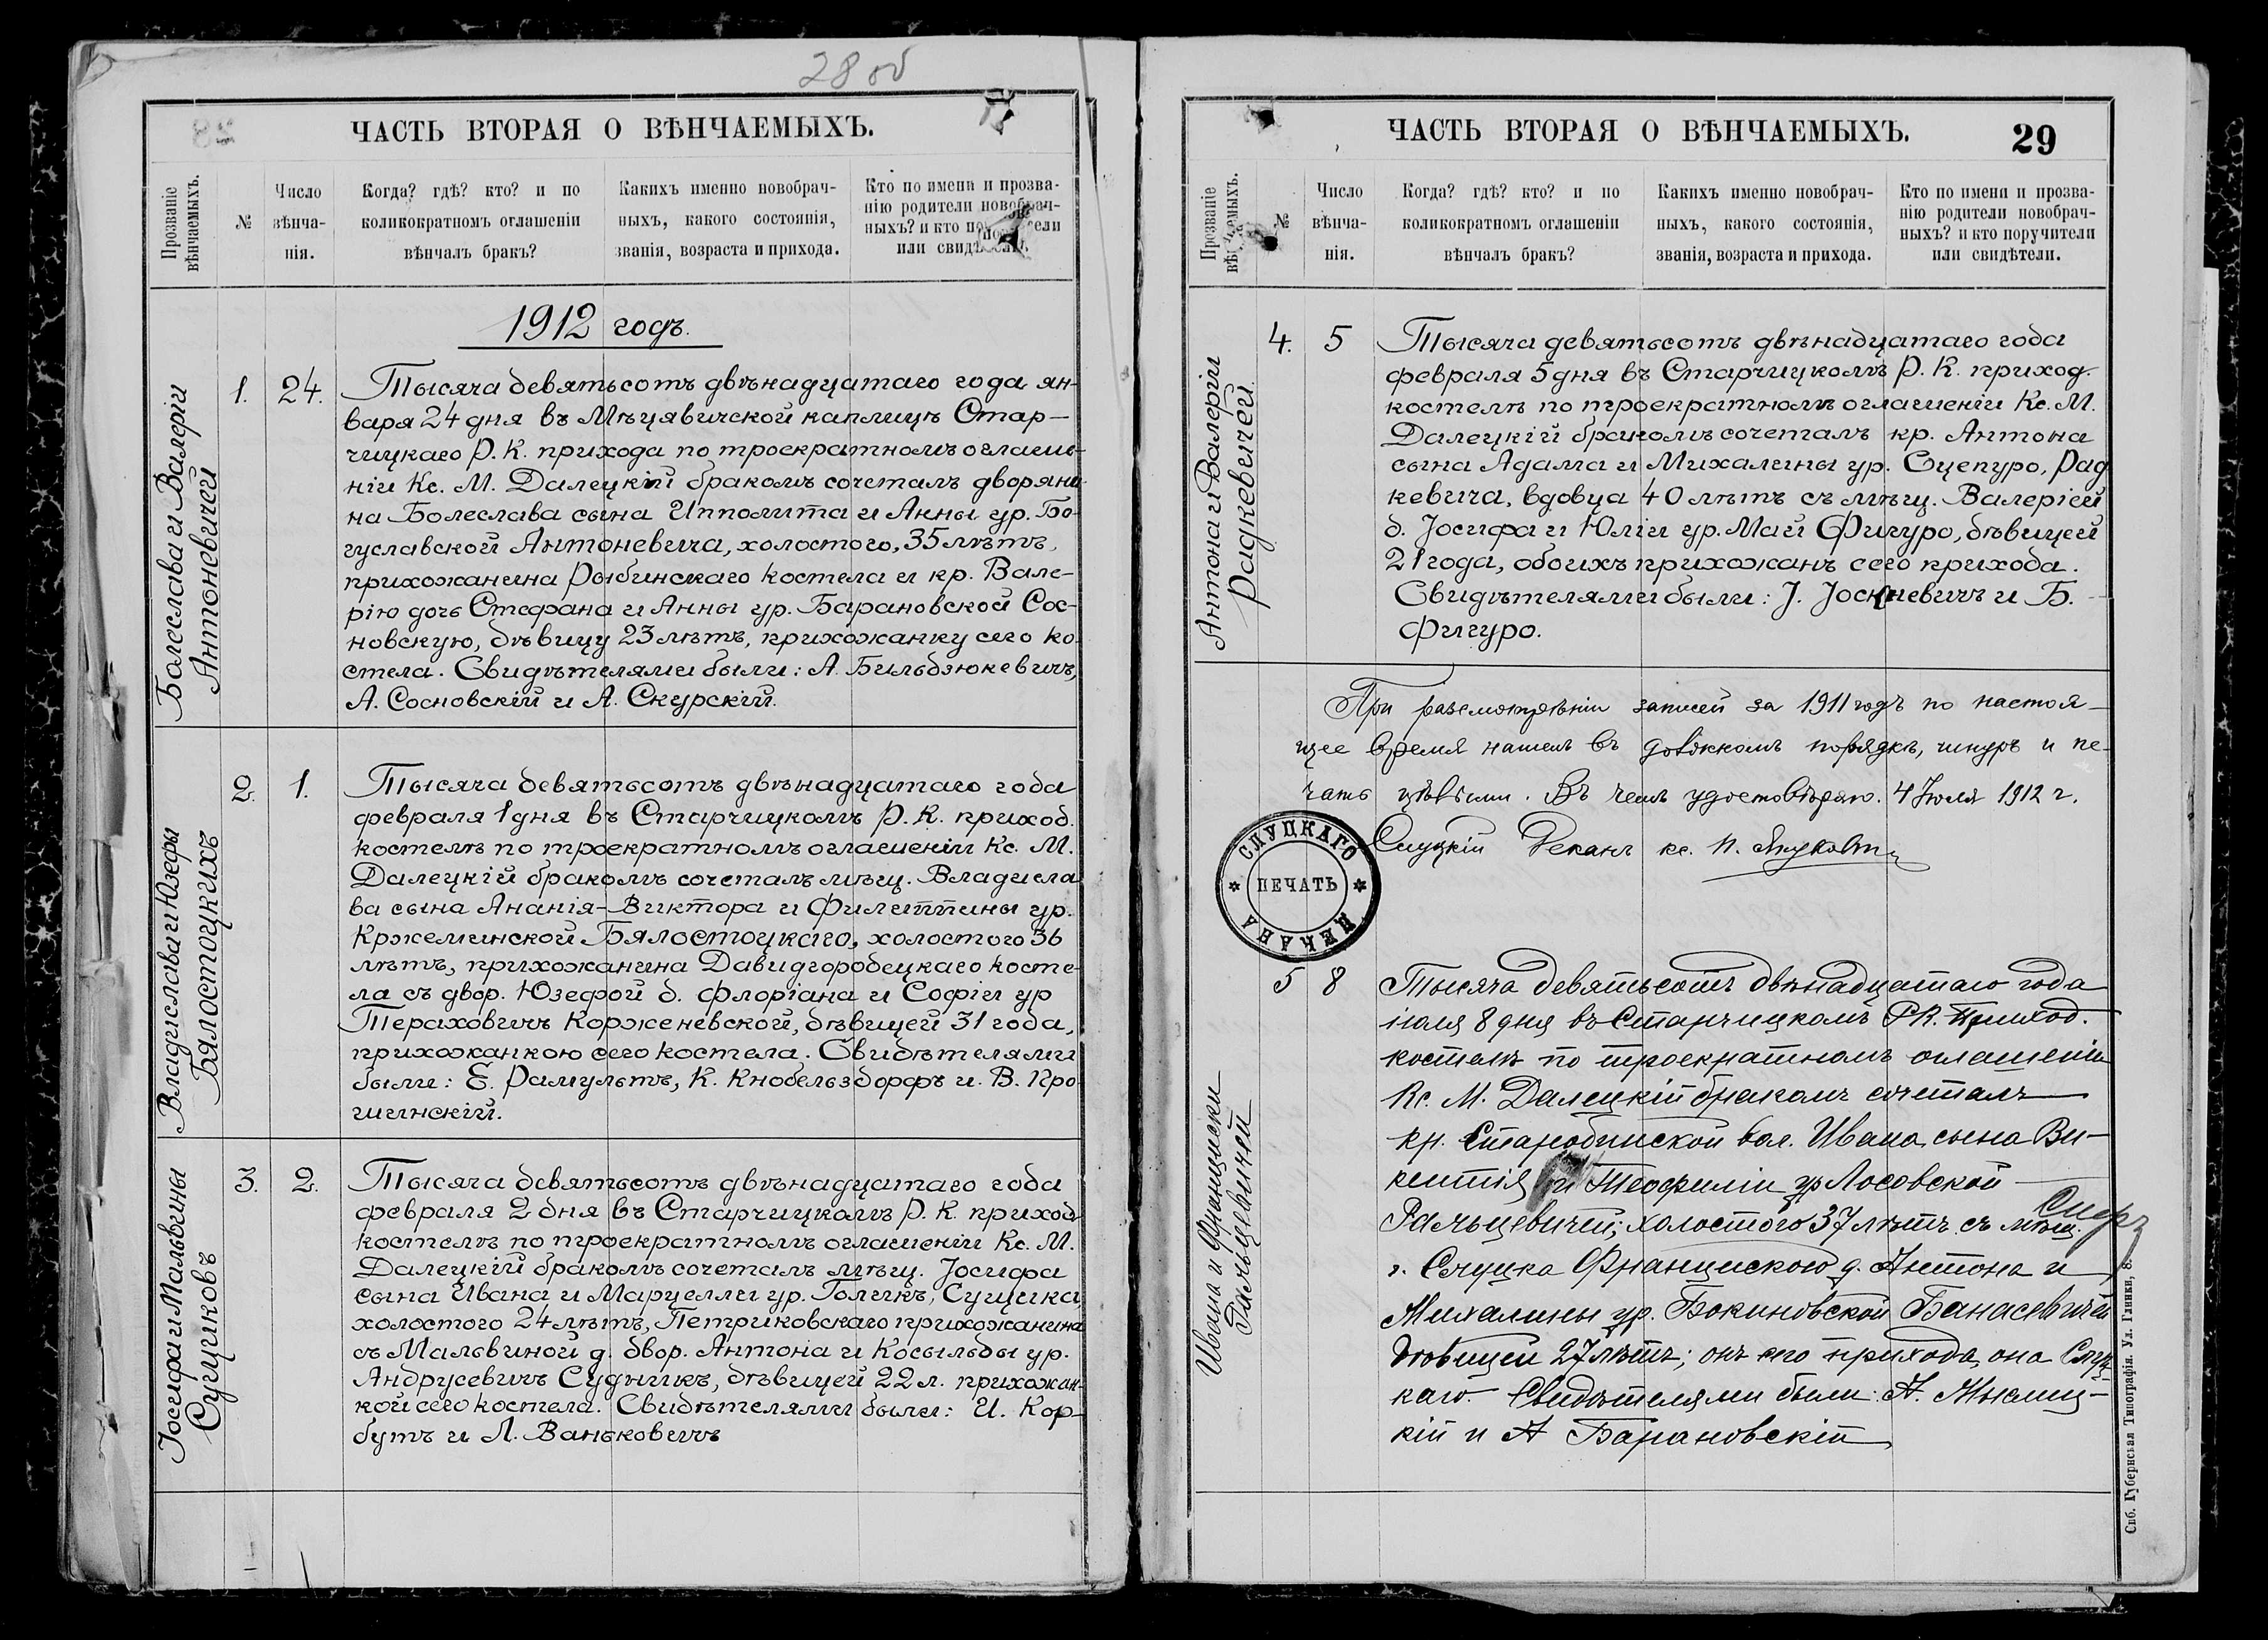 28 об
ЧАСТЬ ВТОРАЯ О ВѢНЧАЕМЫХЪ.
Прозваніе вѣнчаемыхъ.
№
Число вѣнча-нія.
Когда? гдѣ? кто? и по
коликократномъ оглашеніи
вѣнчалъ бракъ?
Какихъ именно новобрач-
ныхъ, какого состоянія,
званія, возраста и прихода.
Кто по имени и прозва-
нію родители новобрач-
ныхъ? и кто
или
1912 годъ.
Болеслава и Валеріи
Антоневичей
1. 24.
Тысяча девятьсотъ двѣнадцатаго года ян-
варя 24 дня въ Мѣцявичской каплицѣ Стар-
чицкаго Р. К. прихода по троекратномъ оглаше-
ніи Кс. М. Далецкій бракомъ сочеталъ дворяни-
на Болеслава сына Ипполита и Анны ур. Бо-
гуславской Антоневича, холостого, 35 лѣтъ,
прихожанина Рыбинскаго костела и кр. Вале-
рію дочь Стефана и Анны ур. Барановской Сос-
новскую, дѣвицу 23 лѣтъ, прихожанку сего ко-
стела. Свидѣтелями были: А. Бильдзюкевичъ,
А. Сосновскій и А. Скурскій.
Владислава и Юзефы
Бялостоцкихъ
2. 1.
Тысяча девятьсотъ двѣнадцатаго года
февраля 1 дня въ Старчицкомъ Р. К. приход.
костелѣ по троекратномъ оглашеніи Кс. М.
Далецкій бракомъ сочеталъ мѣщ. Владисла
ва сына Ананія-Виктора и Филиппины ур.
Кржеминской Бялостоцкаго, холостого 36
лѣтъ, прихожанина Давидгородецкаго косте-
ла съ двор. Юзефой д. Флоріана и Софіи ур
Тераховичъ Корженевской, дѣвицей 31 года,
прихожанкою сего костела. Свидѣтелями
были: Е. Рамультъ, К. Кнобельздорфъ и В. Про
шинскій.
Іосифа и Мальвины
Сущиковъ
3. 2.
Тысяча девятьсотъ двѣнадцатаго года
февраля 2 дня въ Старчицкомъ Р. К. приход
костелѣ по троекратномъ оглашеніи Кс. М.
Далецкій бракомъ сочеталъ мѣщ. Іосифа
сына Ивана и Марцелли ур. Голикъ, Сущика,
холостого 24 лѣтъ, Петриковскаго прихожанина
съ Мальвиной д. двор. Антона и Косыльды ур.
Андрусевичъ Судникъ, дѣвицей 22 л. прихожан-
кой сего костела. Свидѣтелями были: И. Кор-
бутъ и Л. Ваньковичъ
ЧАСТЬ ВТОРАЯ О ВѢНЧАЕМЫХЪ.
29
Прозваніе
№
Число вѣнча-нія.
Когда? гдѣ? кто? и по
коликократномъ оглашеніи
вѣнчалъ бракъ?
Какихъ именно новобрач-
ныхъ, какого состоянія,
званія, возраста и прихода.
Кто по имени и прозва-
нію родители новобрач-
ныхъ? и кто поручители
или свидѣтели.
Антона и Валеріи
Радкевичей
4. 5
Тысяча девятьсотъ двѣнадцатаго года
февраля 5 дня въ Старчицкомъ Р. К. приход.
костелѣ по троекратномъ оглашеніи Кс. М.
Далецкій бракомъ сочеталъ кр. Антона
сына Адама и Михалины ур. Сцепуро, Рад
кевича, вдовца 40 лѣтъ съ мѣщ. Валеріей
д. Іосифа и Юліи ур. Май Фигуро, дѣвицей
21 года, обоихъ прихожанъ сего прихода.
Свидѣтелями были: І. и Б.
Фигуро.
При разсмотрѣніи записей за 1911 годъ по настоя-
щее время нашелъ въ должномъ порядкѣ, шнуръ и пе-
чать цѣлыми. Въ чемъ удостовѣряю. 4 Іюля 1912 г.
Слуцкій Деканъ кс.
СЛУЦКАГО ДЕКАНА
ПЕЧАТЬ
Ивана и Франциски
Рачьцевичей
5 8
Тысяча девятьсотъ двѣнадцатаго года
іюля 8 дня въ Старчицкомъ РК. Приход.
костелѣ по троекратномъ оглашеніи
Кс. М. Далецкій бракомъ сочеталъ
кр. Старобинской вол. Ивана сына Ви-
кентія и Теофиліи ур Лосовской
холостого 37 лѣтъ съ мѣщ.
г. Слуцка Францискою д. Антона и
Михалины ур. Бокиновской Банасевичей
дѣвицей 27 лѣтъ; онъ сего прихода, она Слуц
каго. Свидѣтелями были: А. Мыслиц-
кій и А Барановскій
Спб. Губернская Типографія. Ул. Глинки, 8.